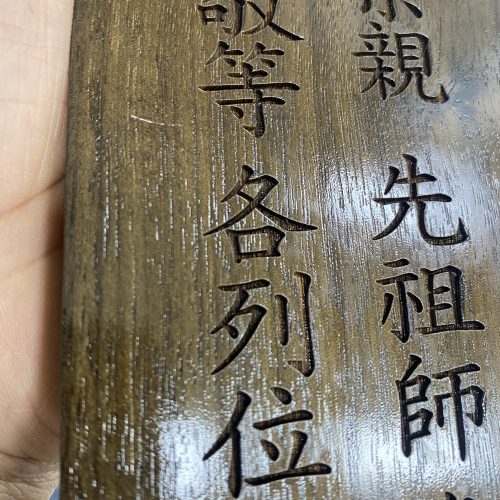 親先祖師
等各列位